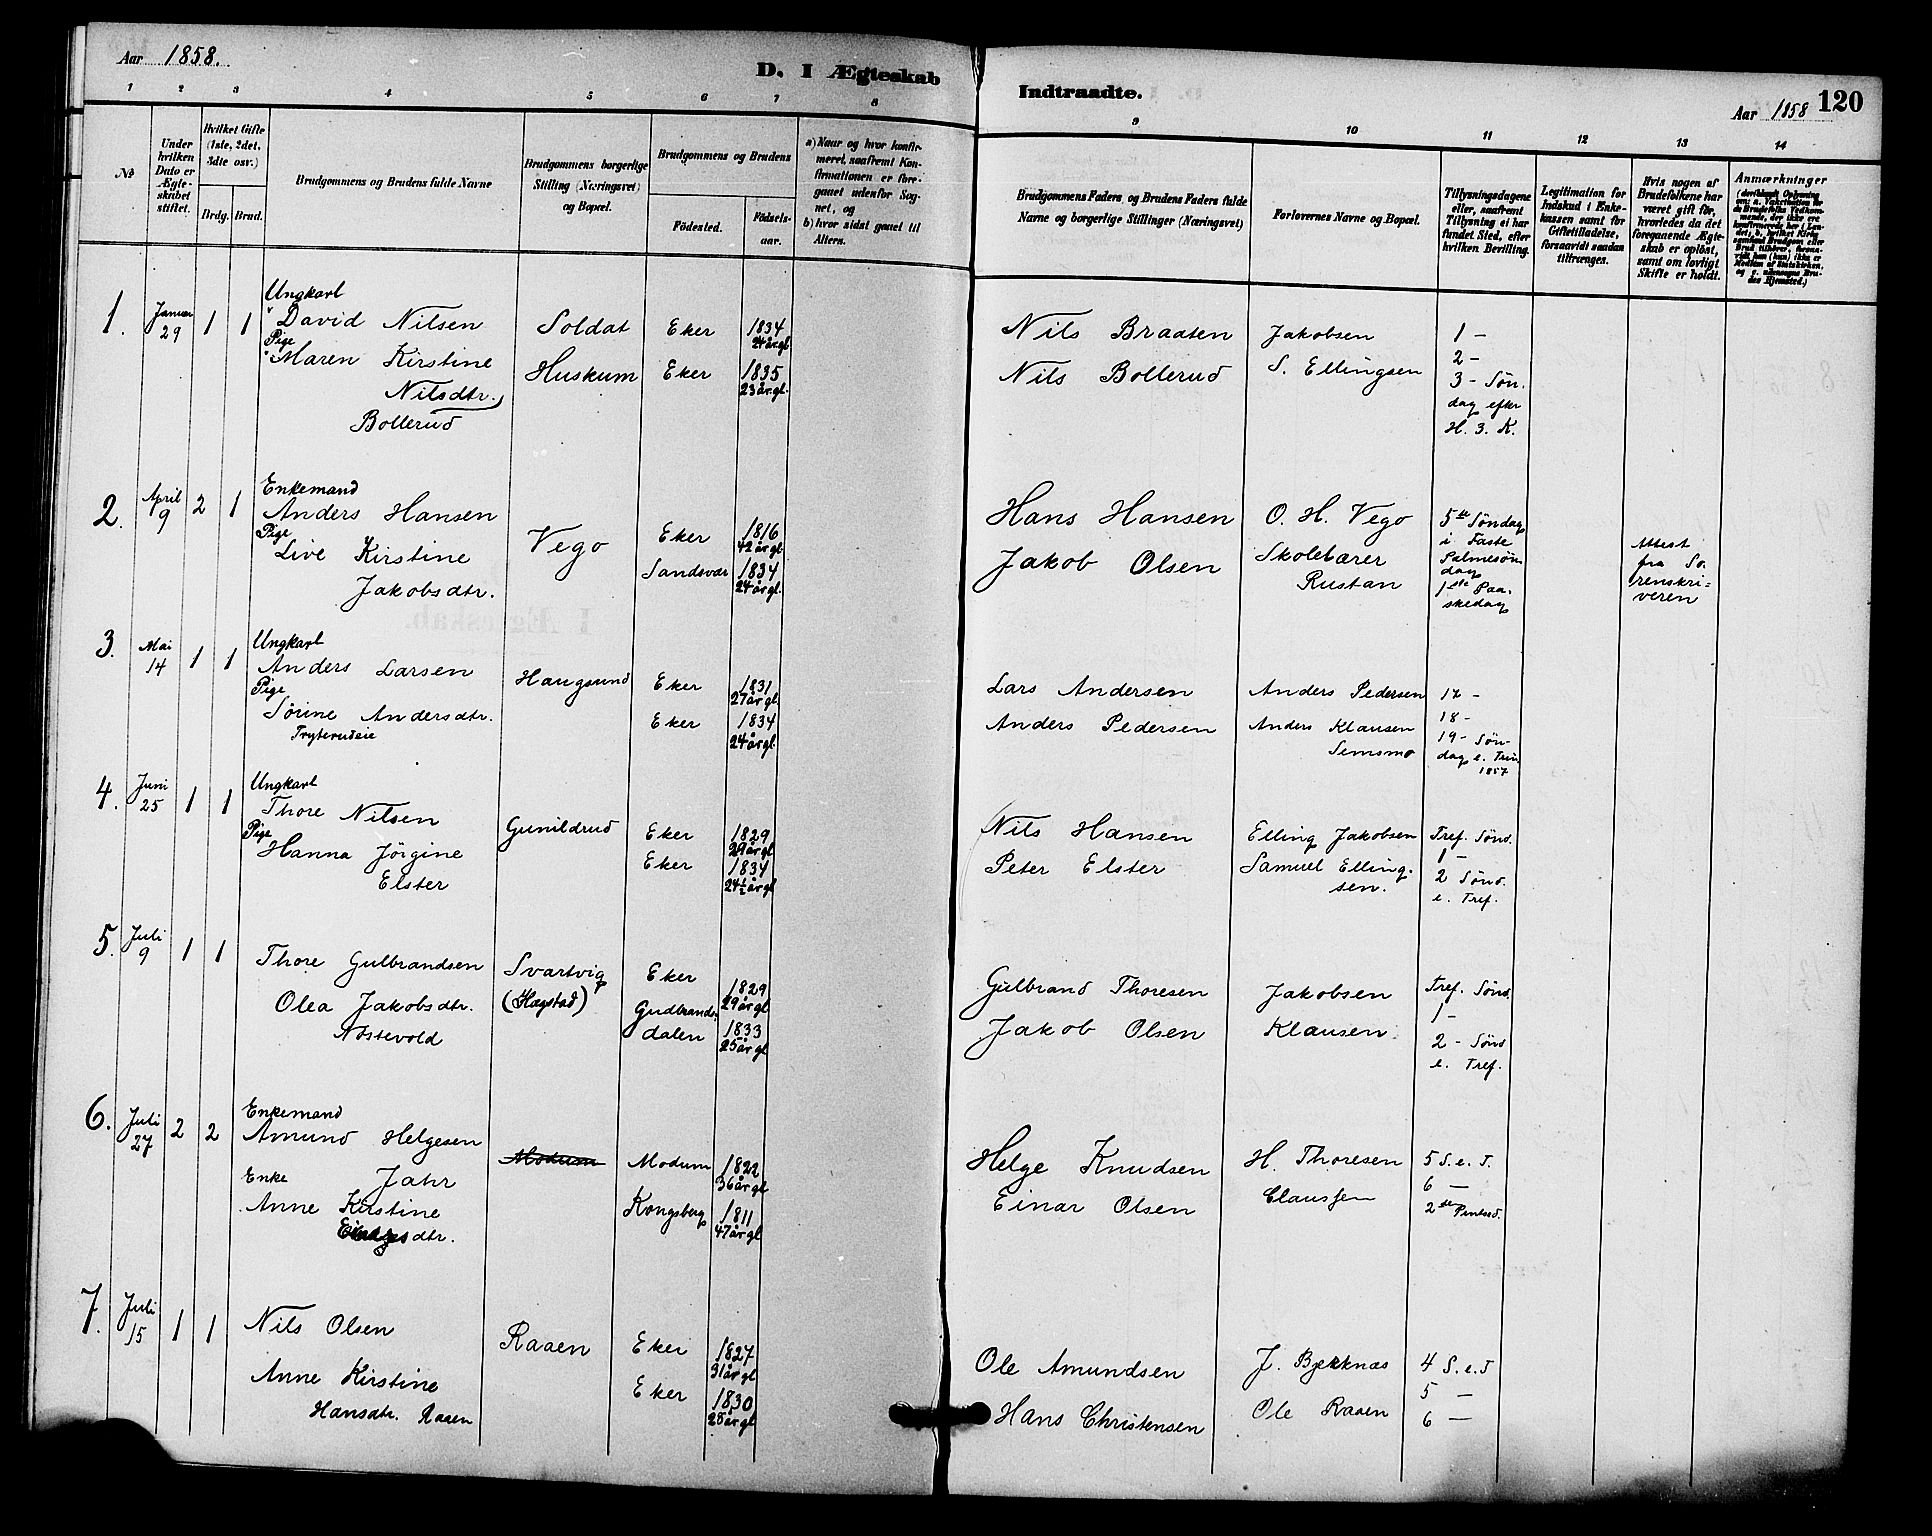 Aar 1858.
D. I Ægteskab
1 2 3 4 5 6 7 8
No
Under hvilken Dato er Ægteskabet stiftet.
Hvilket Gifte (1ste, 2det, 3die osv.)
Brdg. Brud.
Brudgommens og Brudens fulde Navne
Brudgommens borgerlige Stilling (Næringsvei) og Bopæl.
Brudgommens og Brudens
Födested.
Födsels-aar.
a) Naar og hvor konfirmeret, saafremt Konfirmationen er foregaaet udenfor Sognet, og
b) hvor sidst gaaet til Alters.
1. Januar 29 1 1
Ungkarl
David Nilsen Soldat Eker 1834
24 år gl.
Pige
Maren Kirstine Huskum Eker 1835
23 år gl.
Nilsdtr.
Bollerud
2. April 9 2 1
Enkemand
Anders Hansen Vego Eker 1816
42 år gl
Pige
Live Kirstine Sandsvær 1834
24 år gl.
Jakobsdtr.
3. Mai 14 1 1
Ungkarl
Anders Larsen Haugsund Eker 1831
27 år gl.
Pige
Sørine Andersdtr. Eker 1834
24 år gl.
Tryterudeie
4. Juni 25 1 1
Ungkarl
Thore Nilsen Gunildrud Eker 1829
29 år gl
Pige
Hanna Jörgine Eker 1834
24½ år gl
Elster
5. Juli 9 1 1
Thore Gulbrandsen Svartvig Eker 1829
29 år gl
Olea Jakobsdtr. (Hagstad) Gudbrandsdalen 1833
25 år gl
Nöstevold
6. Juli 27 2 2
Enkemand
Amund Helgesen Modum Modum 1822
36 år gl
Jahr
Enke
Anne Kirstine Kongsberg 1811
47 år gl
dtr.
7. Juli 15 1 1
Nils Olsen Raaen Eker 1827
31 år gl
Anne Kirstine Eker 1830
år gl
Hansdtr. Raaen
Indtraadte.
Aar 1858 120
9 10 11 12 13 14
Brudgommens Faders og Brudens Faders fulde Navne og borgerlige Stillinger (Næringsvei)
Forlovernes Navne og Bopæl.
Tillysningsdagene eller, saafremt Tillysning ei har fundet Sted, efter hvilken Bevilling.
Legitimation for Indskud i Enkekassen samt for Giftetilladelse, forsaavidt saadan tiltrænges.
Hvis nogen af Brudefolkene har været gift för, hvorledes da det foregaaende Ægteskab er oplöst, samt om lovligt Skifte er holdt.
Anmærkninger
Nils Braaten Jakobsen 1 -
2 -
Nils Bollerud S. Ellingsen 3 - Søn.
dag efter
H. 3. K.
Hans Hansen O. H. Vego 5te Søndag
i Faste
Jakob Olsen Skolelærer Palmesøndag
Rustan 1ste Paaskedag
Attest
fra So.
renskri=
veren
Lars Andersen Anders Pedersen 17 -
18 -
Anders Pedersen Anders Klausen 19 - Søn-
Semsmo dag e. Trin
1857
Nils Hansen Elling Jakobsen Tref. Sönd.
1 -
Peter Elster Samuel Ellingsen. 2 Sönd.
e. Tref.
Gulbrand Thoresen Jakobsen Tref. Sönd.
1 -
Jakob Olsen Klausen 2 - Sönd
e. Tref.
Helge Knudsen H. Thoresen 5 S. e. T.
6 —
Einar Olsen Claussen 2den Pintsed.
Ole Amundsen J. Bjerknæs 4 S. e. T
5 —
Hans Christensen Ole Raaen 6 —